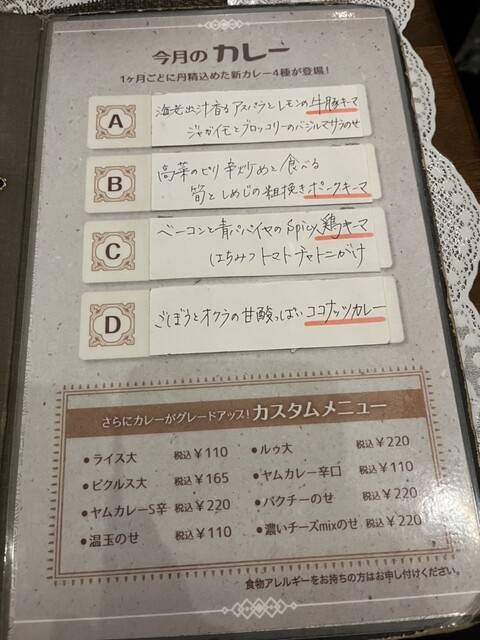 今月の カレー
1ヶ月ごとに丹精込めた新カレー4種が登場!
A
海老出汁香るアスパラとレモンの牛豚キーマ
ジャガイモとブロッコリーのバジルマサラのせ
B
高菜のピリ辛炒めと食べる
筍としめじの粗挽きポークキーマ
C
ベーコンと青パパイヤのspicy鶏キーマ
はちみつトマトチャトニがけ
D
ごぼうとオクラの甘酸っぱいココナッツカレー
さらにカレーがグレードアップ! カスタムメニュー
●ライス大 税込¥110 ●ルゥ大 税込¥220
●ピクルス大 税込¥165 ●ヤムカレー辛口 税込¥110
●ヤムカレーS辛 税込¥220 ●パクチーのせ 税込¥220
●温玉のせ 税込¥110 ●濃いチーズmixのせ 税込¥220
食物アレルギーをお持ちの方はお申し付けください。